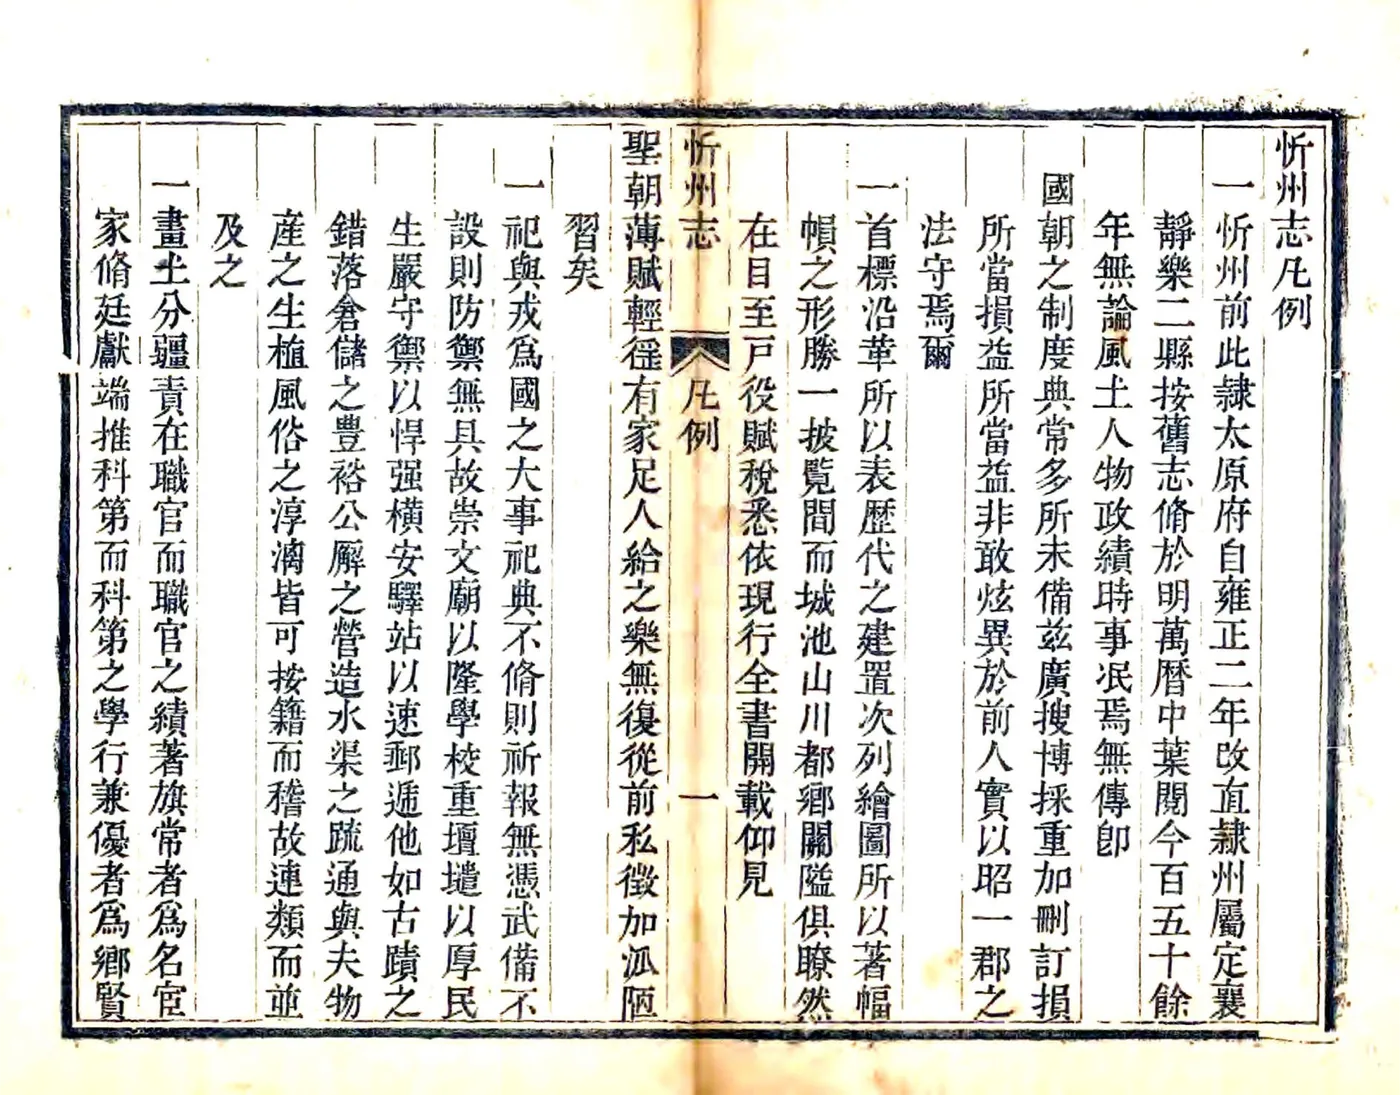 忻州志凡例
一忻州前此隷太原府自雍正二年改直隷州屬定襄
靜樂二縣按舊志脩於明萬曆中葉閱今百五十餘
年無論風土人物政績時事冺焉無傳卽
國朝之制度典常多所未備茲廣搜博採重加刪訂損
所當損益所當益非敢炫異於前人實以昭一郡之
法守焉爾
一首標沿革所以表歷代之建置次列繪圖所以著幅
幀之形勝一披覧間而城池山川都鄕關隘俱瞭然
在目至戸役賦稅悉依現行全書開載仰見
忻州志
凡例
一
聖朝薄賦輕徭有家足人給之樂無復從前私徵加派陋
習矣
一祀與戎爲國之大事祀典不脩則祈報無憑武備不
設則防禦無具故崇文廟以隆學校重壇壝以厚民
生嚴守禦以悍强橫安驛站以速郵遞他如古蹟之
錯落倉儲之豐裕公廨之營造水渠之疏通與夫物
産之生植風俗之淳漓皆可按籍而稽故連類而並
及之
一畫土分疆責在職官而職官之績著旗常者爲名宦
家脩廷獻端推科第而科第之學行兼優者爲鄕賢